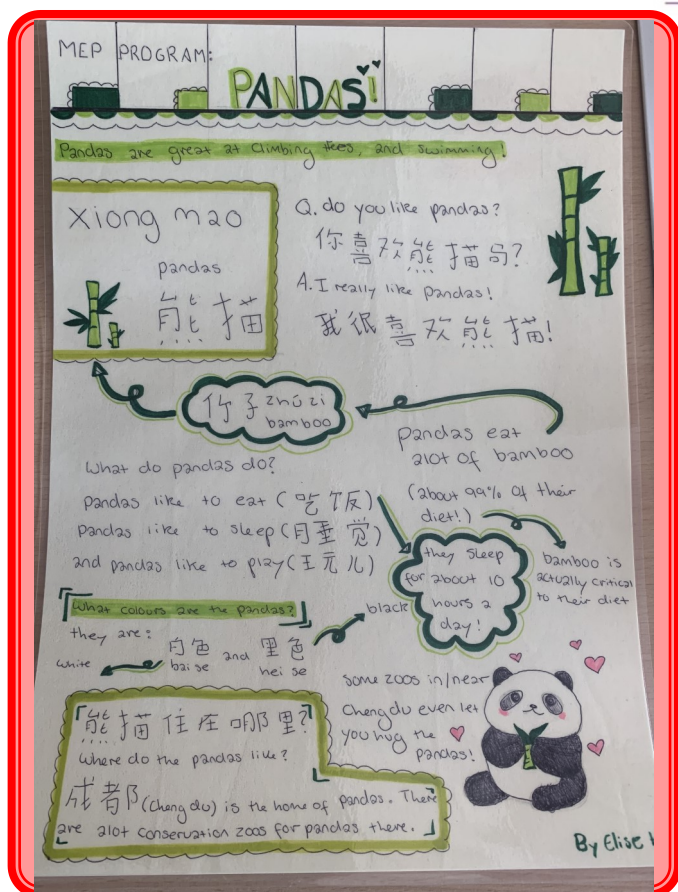 MEP PROGRAM:
PANDAS!
Pandas are great at climbing trees, and swimming!
xiong mao
pandas
熊描
Q. do you like pandas?
你喜欢熊描句?
A. I really like Pandas!
我很喜欢熊描!
竹子 zhú zi
bamboo
pandas eat
alot of bamboo
(about 99% of their
diet!)
bamboo is
actually critical
to their diet
What do pandas do?
pandas like to eat (吃饭)
pandas like to sleep (睡觉)
and pandas like to play (玩儿)
they sleep
for about 10
hours a
day!
What colours are the pandas?
they are:
白色 and 里色
bai se
hei se
white
black
some zoos in/near
Chengdu even let
you hug the
pandas!
熊描住在哪里?
Where do the pandas live?
成都 (Cheng du) is the home of pandas. There
are alot conservation zoos for pandas there.
By Elise